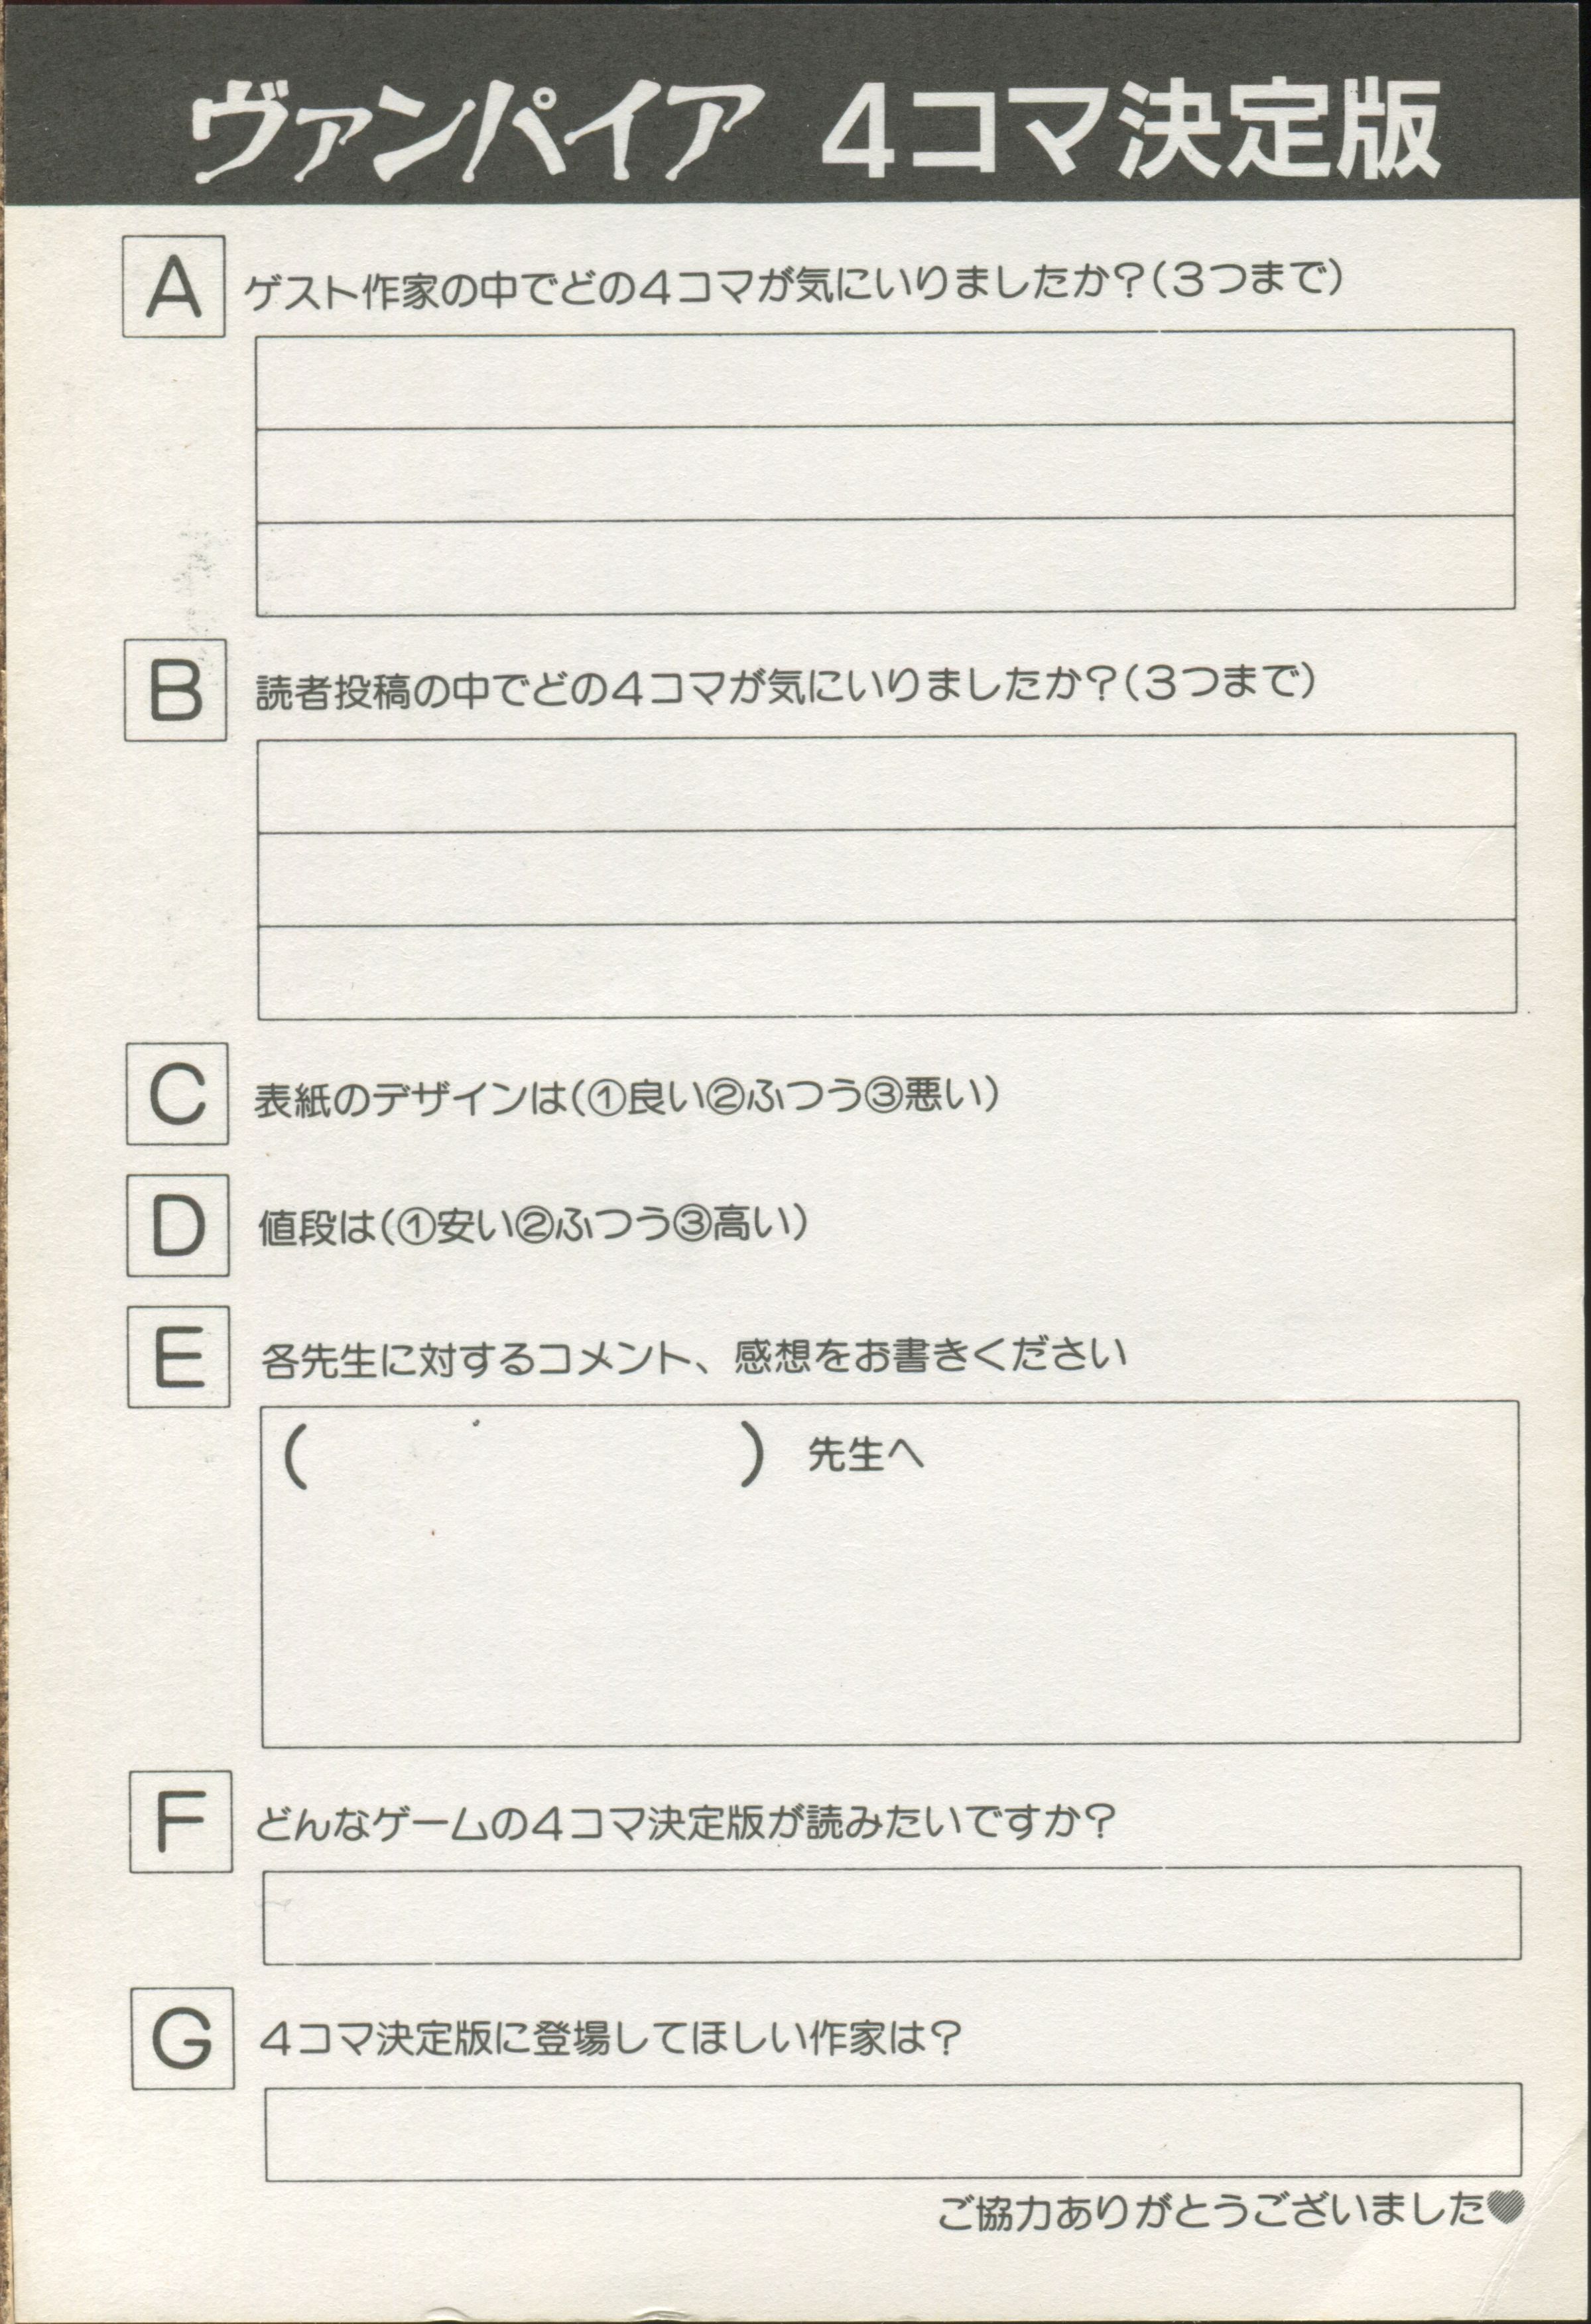 ヴァンパイア 4コマ決定版
A ゲスト作家の中でどの4コマが気にいりましたか?(3つまで)
B 読者投稿の中でどの4コマが気にいりましたか?(3つまで)
C 表紙のデザインは(①良い②ふつう③悪い)
D 値段は(①安い②ふつう③高い)
E 各先生に対するコメント、感想をお書きください
( ) 先生へ
F どんなゲームの4コマ決定版が読みたいですか?
G 4コマ決定版に登場してほしい作家は?
ご協力ありがとうございました♥